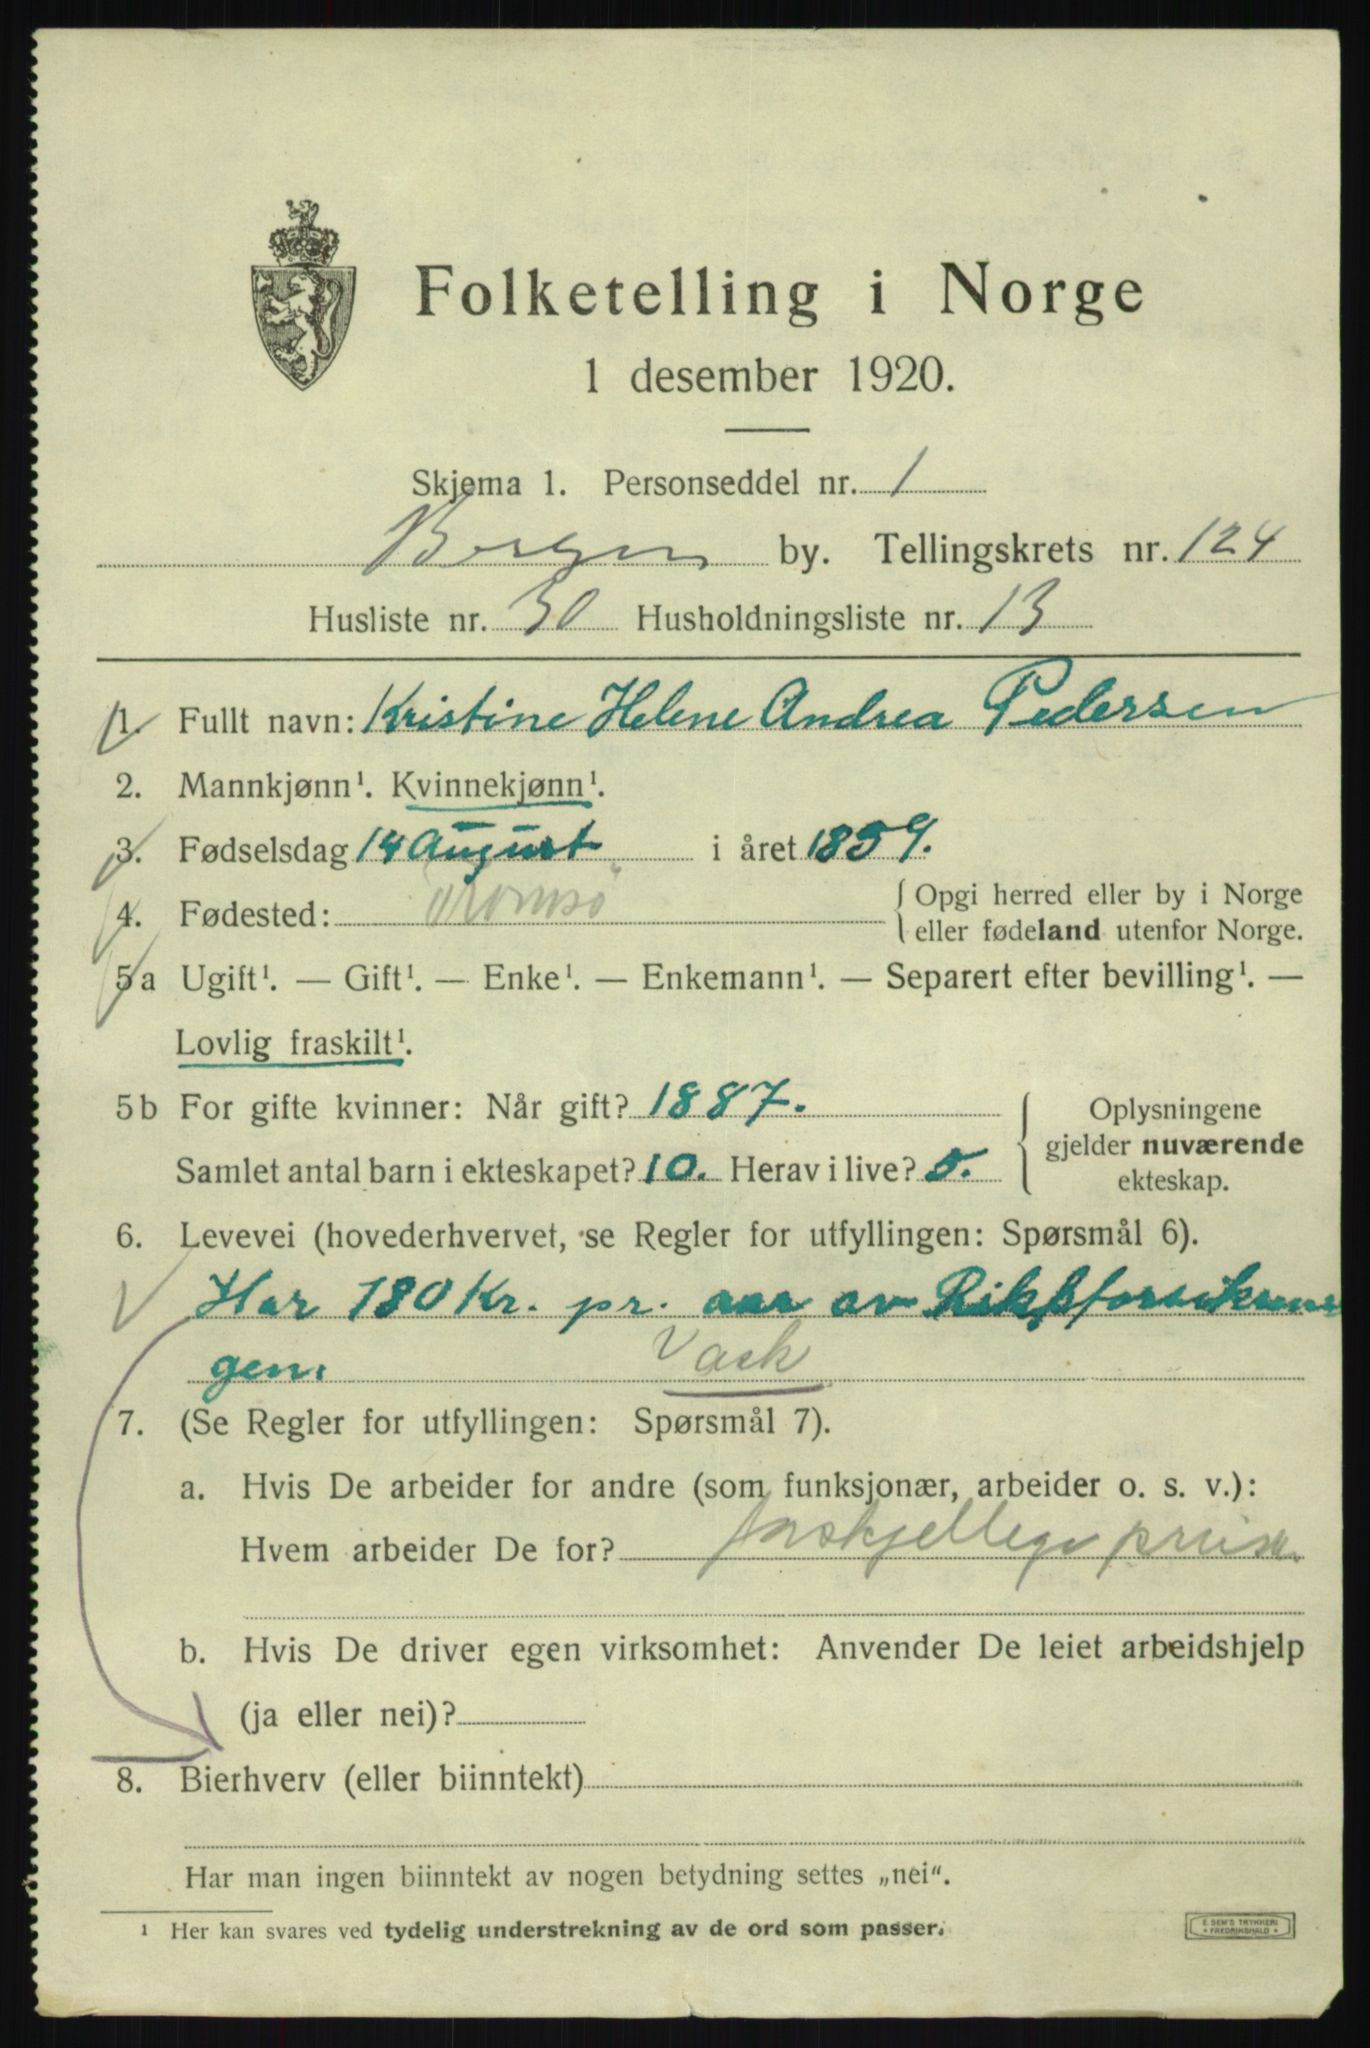 Folketelling i Norge
1 desember 1920.
Skjema 1. Personseddel nr. 1
Bergen by. Tellingskrets nr. 124
Husliste nr. 30 Husholdningsliste nr. 13
1. Fullt navn: Kristine Helene Andrea Pedersen
2. Mannkjønn¹. Kvinnekjønn¹.
3. Fødselsdag 14 August i året 1859.
4. Fødested: Tromsø { Opgi herred eller by i Norge
eller fødeland utenfor Norge.
5a Ugift¹. — Gift¹. — Enke¹. — Enkemann¹. — Separert efter bevilling¹. —
Lovlig fraskilt¹.
5b For gifte kvinner: Når gift? 1887.
Samlet antal barn i ekteskapet? 10. Herav i live? 5.
Oplysningene
gjelder nuværende
ekteskap.
6. Levevei (hovederhvervet, se Regler for utfyllingen: Spørsmål 6).
Har 180 Kr. pr. aar av
gen. Vask
7. (Se Regler for utfyllingen: Spørsmål 7).
a. Hvis De arbeider for andre (som funksjonær, arbeider o. s. v.):
Hvem arbeider De for? forskjellige
b. Hvis De driver egen virksomhet: Anvender De leiet arbeidshjelp
(ja eller nei)?
8. Bierhverv (eller biinntekt)
Har man ingen biinntekt av nogen betydning settes „nei".
¹ Her kan svares ved tydelig understrekning av de ord som passer.
E. SEM'S TRYKKERI
• FREDRIKSHALD •